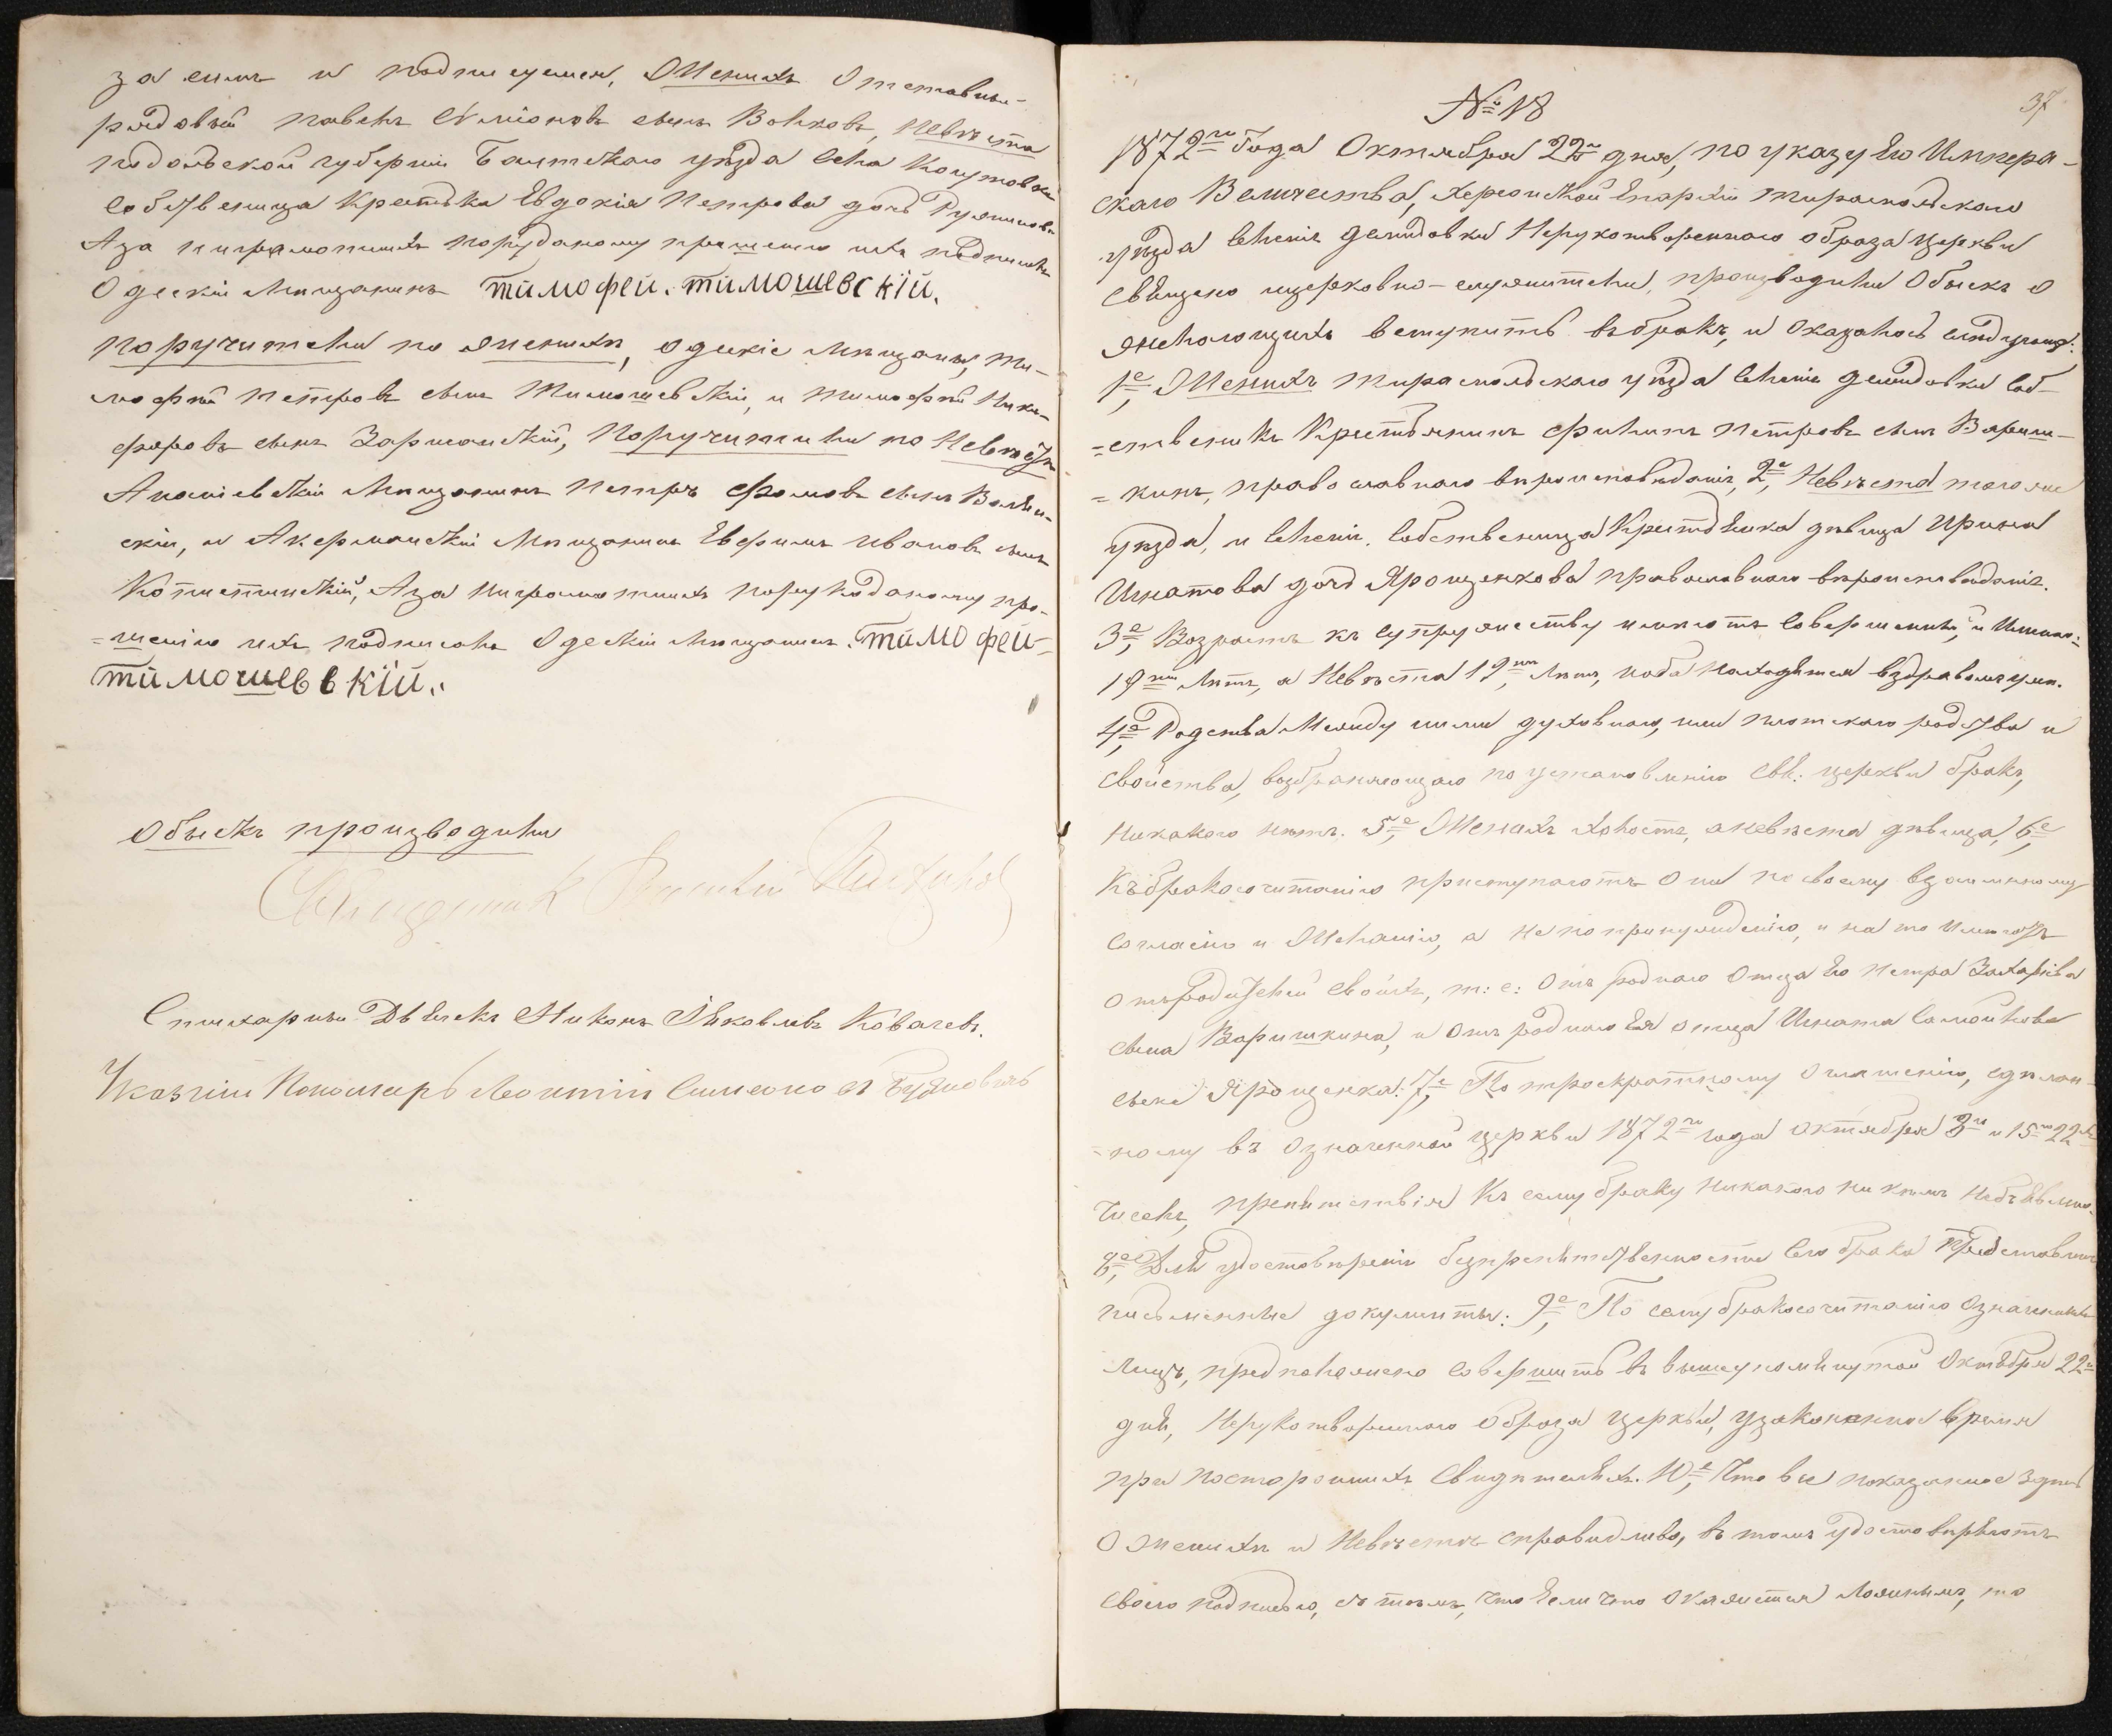 за симъ и подпишемся, Женихъ Отставны-
рядовый Павелъ Симіоновъ сынъ Волковъ, Невѣста
подольской губерніи Балтскаго уѣзда села
собственица Крестьянка Евдокія Петрова дочь
Аза неграмотныхъ порудоному прошенію ихъ подписалъ
Одескій Мещанинъ тимофей. тимошевскій.
поручители по Женихѣ, одескіе Мещаны, Ти-
мофей Петровъ сынъ Тимошевскій, и тимофей Ники-
форовъ сынъ Поручители по Невѣстѣ
Ананіевскій Мѣщанинъ Петръ Фомовъ сынъ Волян-
скій, и Акерманскій Мѣщанинъ Ефимъ Ивановъ сынъ
Аза Неграмотныхъ порукоданому про-
=шенію ихъ подписалъ Одескій Мѣщанинъ. тимофей-
тимошевскій.
Обыскъ производили
Священникъ Василій
Спихарный Дьячекъ Никонъ Яковлевъ Ковачевъ.
Указный Пономарь Леонтій Симеоновъ
37
№ 18
1872го Года Октября 22го дня, по указу Его Импера-
скаго Величества, Херсонской Епархіи Тираспольскаго
уѣзда Селенія Демидовки Нерукотвореннаго образа церкви
Священо ицерковно-служители, производили Обыскъ о
желающихъ вступить вьбракъ, и оказалось слѣдующе:
1е, Женихъ Тираспольскаго уѣзда Селенія Демидовки Соб-
=ственикъ Крестьянинъ Филипъ Петровъ сынъ Вариш-
=кинъ, православнаго вѣроисповѣданія, 2е, Невѣста тогоже
уѣзда, и Селенія, Собственица Крестьянка дѣвица Ирина
Игнатова дочь Ярощенкова православнаго вѣроисповѣданія.
3е, Возрастъ къ супружеству имеютъ совершенный, и Именно:
19ть Лѣтъ, а Невѣста 19ть Лѣтъ, иоба находятся вздравомъ умѣ.
4е, Родства Между ними духовнаго, или плотскаго родства и
свойства, возбраняющаго по установленію Свя: церкви бракъ,
никакого нѣтъ. 5е, Женихъ холостъ, аневѣста дѣвица, 6е,
Къбракосочитанію приступаютъ Они по своему взаимному
согласію и Желанію, а не по принужденію, и на то Имеютъ
отъродителей своихъ, т: е: Отъ роднаго Отца Его Петра Захаріева
сына Варишкина, и Отъ роднаго Ея отца Игната Самойлова
сына Ярощенка. 7е, По троекратному Оглашенію, сдѣлан-
=ному въ означенной церкви 1872го года октября 8го и 15го 22го
Чиселъ, препятствія Къ сему браку никакого ни кѣмъ Необъявлено.
8е, Для удостовѣренія безпрепятственности Сего брака Представлены
писменные документы: 9е, По сему бракосочитанію Означенныхъ
лицъ, предположено совершить въ вышеупомянутой Октября 22го
дня, Нерукотвореннаго Образа церкви, узаконенное время
при постороннихъ свидѣтеляхъ. 10е, Что все показанное здѣсь
О женихѣ и Невѣстѣ справедливо, въ томъ удостовѣряютъ
своею подписью, съ тѣмъ, что Если что окажется Ложнымъ, то